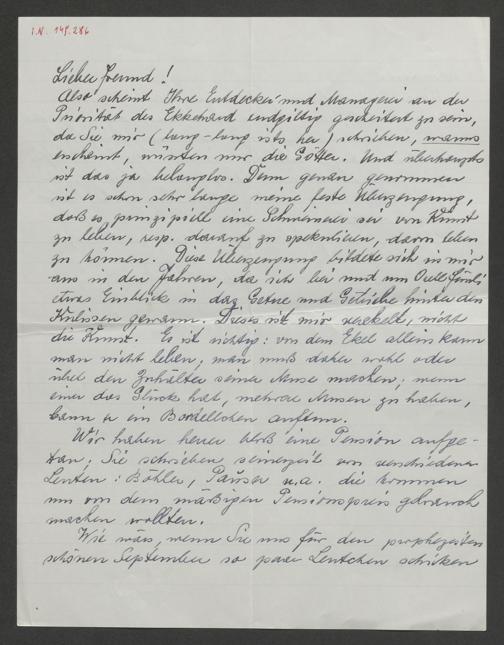 I.N. 148.286
Lieber Freund!
Also scheint Ihre Entdecker- und Managerei an der
Priorität des Ekkehard endgiltig gescheitert zu sein,
da Sie mir (lang-lang ists her) schrieben, wanns
erscheint, wüssten nur die Götter. Und überhaupts
ist das ja belanglos. Denn genau genommen
ist es schon sehr lange meine feste Überzeugung,
daß es prinzipielle eine Schweinerei sei von Kunst
zu leben, resp. darauf zu spekulieren, davon leben
zu können. Diese Überzeugung bildete sich in mir
aus in den Jahren, da ich bei und um
etwas Einblick in das Getue und Getriebe hinter den
Kulissen gewann. Dieses ist mir verekelt, nicht
die Kunst. Es ist richtig: von dem Ekel allein kann
man nicht leben; man muß daher wohl oder
übel den Zuhälter seiner Muse machen; wenn
einer das Glück hat, mehrere Musen zu haben,
kann er ein Bordellchen auftun.
Wir haben heuer bloß eine Pension aufge-
tan. Sie schrieben seinerzeit von verschiedenen
Leuten: Böhler, u.a. die kommen
um von dem mäßigen Pensionspreis Gebrauch
machen wollten.
Wie wärs, wenn Sie uns für den prophezeiten
schönen September so paar Leutchen schicken